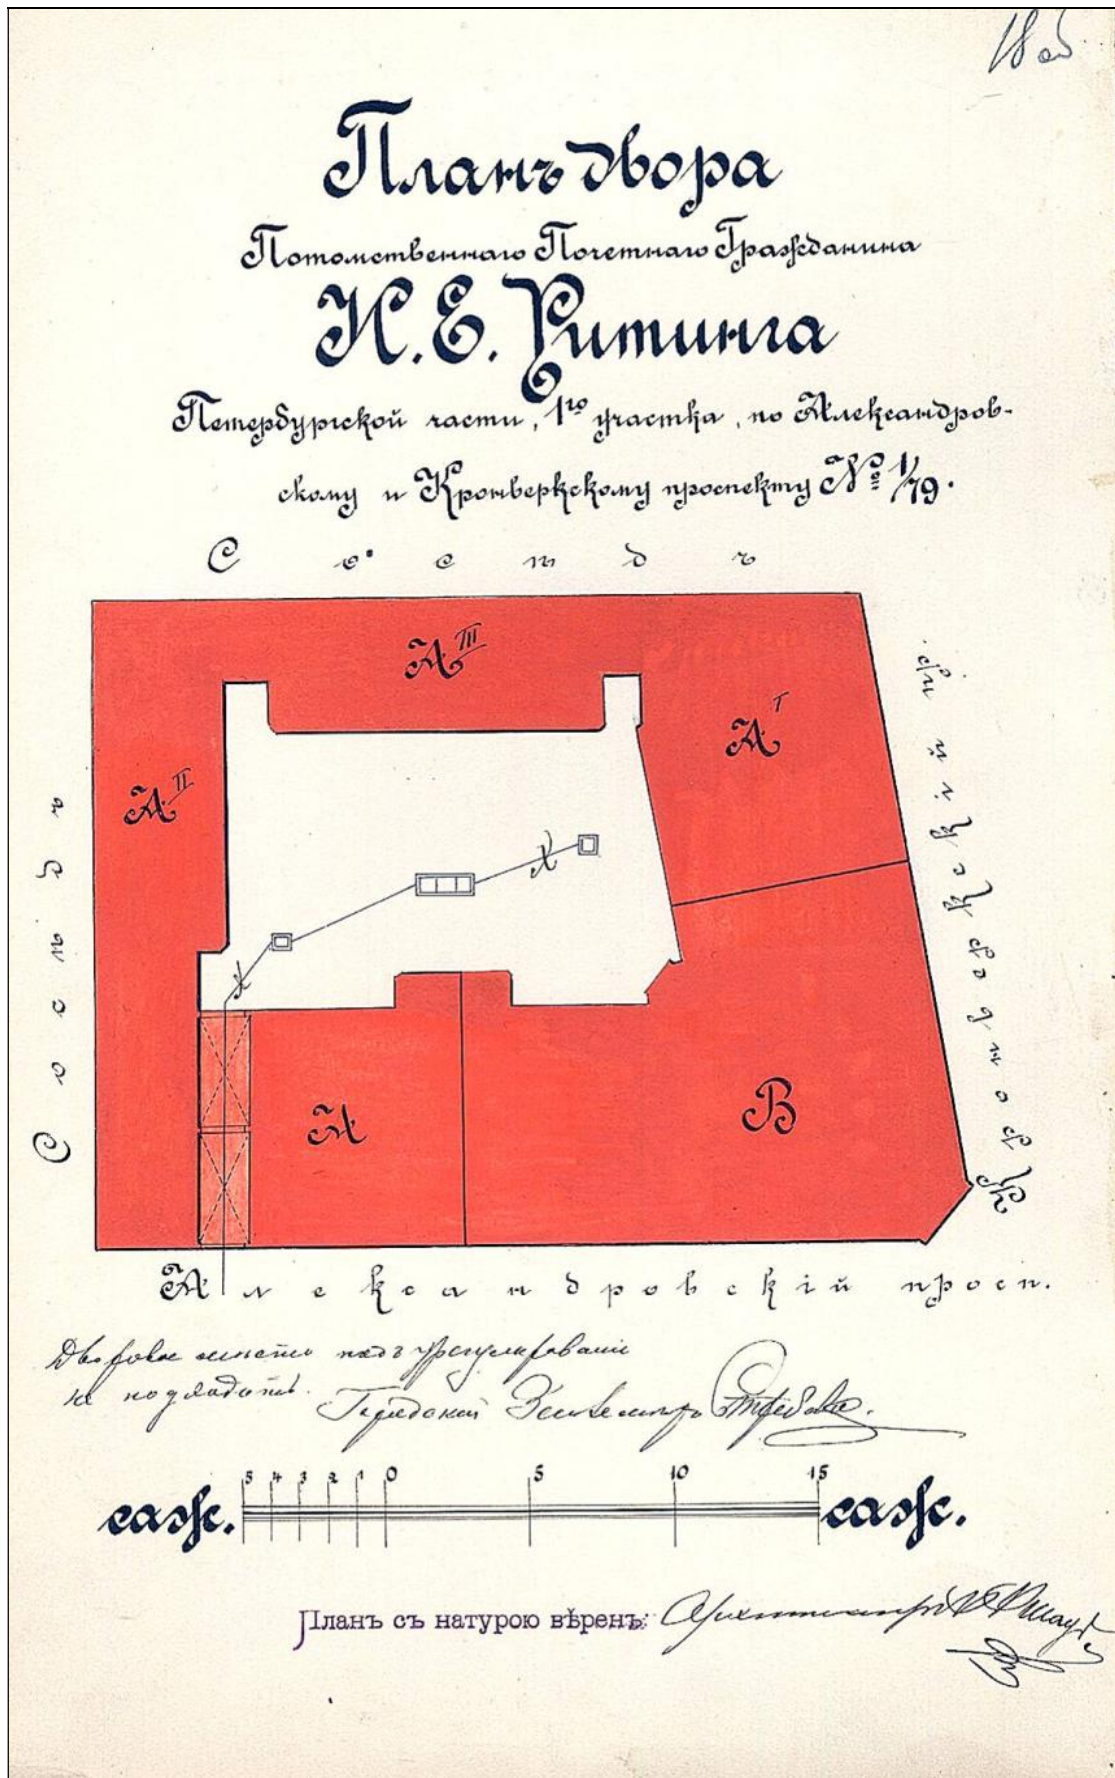 18 об
Планъ двора
Потомственнаго Почетнаго Гражданина
К. Е. Ритинга
Петербургской части, 1го участка, по Александров-
скому и Кронверкскому проспекту № 1/79.
Сосѣдъ
A III
A I
A II
Сосѣдъ
Кронверкскій пр.
X
X
A
B
Александровскій просп.
Дворовое мѣсто подъ урегулированіе
не подходитъ.
Городской Землемѣръ
5 4 3 2 1 0 5 10 15
саж. саж.
Планъ съ натурою вѣренъ: Архитекторъ